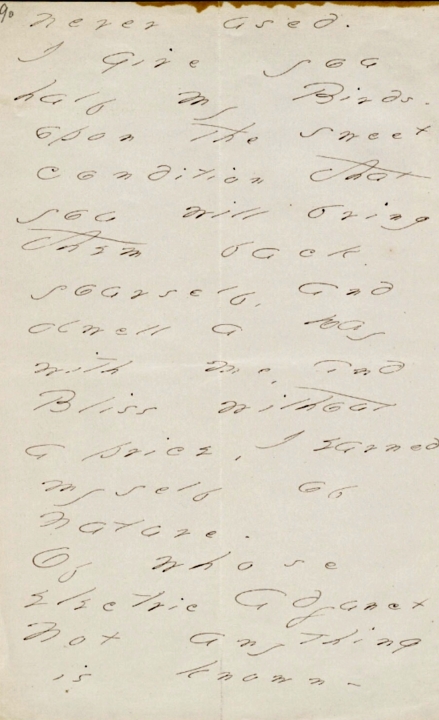 90
never used.
I give you
half my Birds.
upon the sweet
condition that
you will bring
them back
yourself, and
dwell a Day
with me, and
Bliss without
a price, I earned
myself of
Nature.
Of whose
electric Adjunct
Not anything
is known -